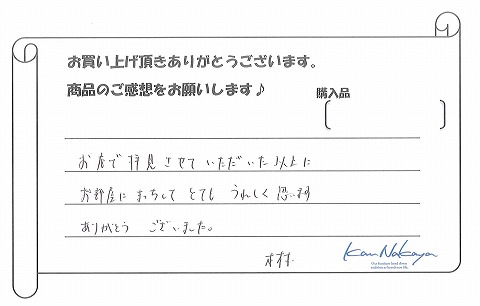 お買い上げ頂きありがとうございます。
商品のご感想をお願いします♪
購入品
お店で拝見させていただいた以上に
お部屋にまっちしてとてもうれしく思います
ありがとうございました。
木村
Kan Nakaya